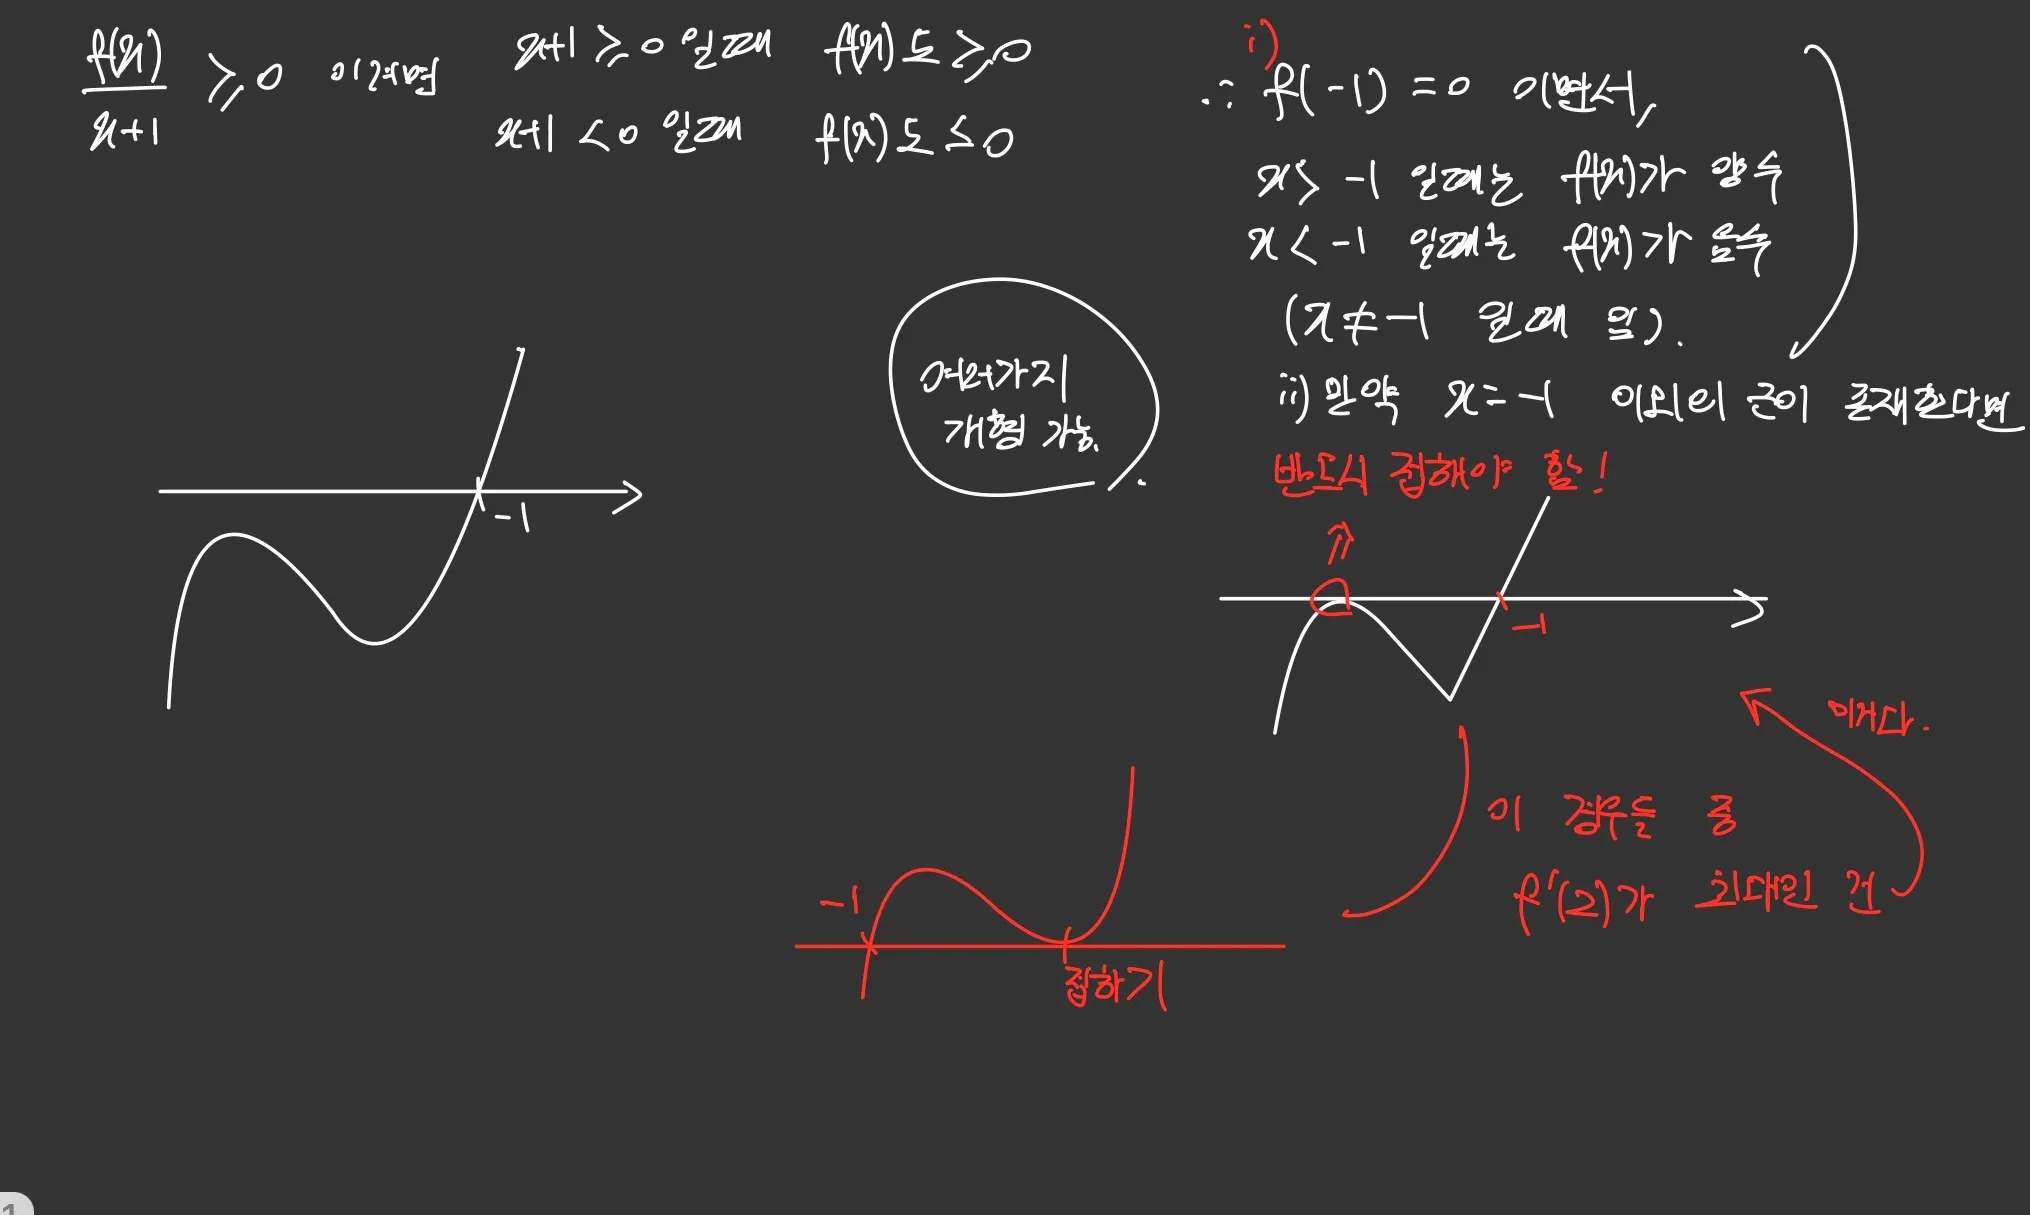 f(x)/(x+1) ≥ 0 이려면
x+1 ≥ 0 일때 f(x)도 ≥ 0
x+1 < 0 일때 f(x)도 ≤ 0
i)
∴ f(-1) = 0 이면서,
x > -1 일때는 f(x)가 양수
x < -1 일때는 f(x)가 음수
(x ≠ -1 일때 임).
ii) 만약 x = -1 이외의 근이 존재한다면
반드시 접해야 함!
여러가지
개형 가능.
-1
⇑
-1
이거다.
이 경우들 중
f'(2)가 최대인 건
-1
접하기
1